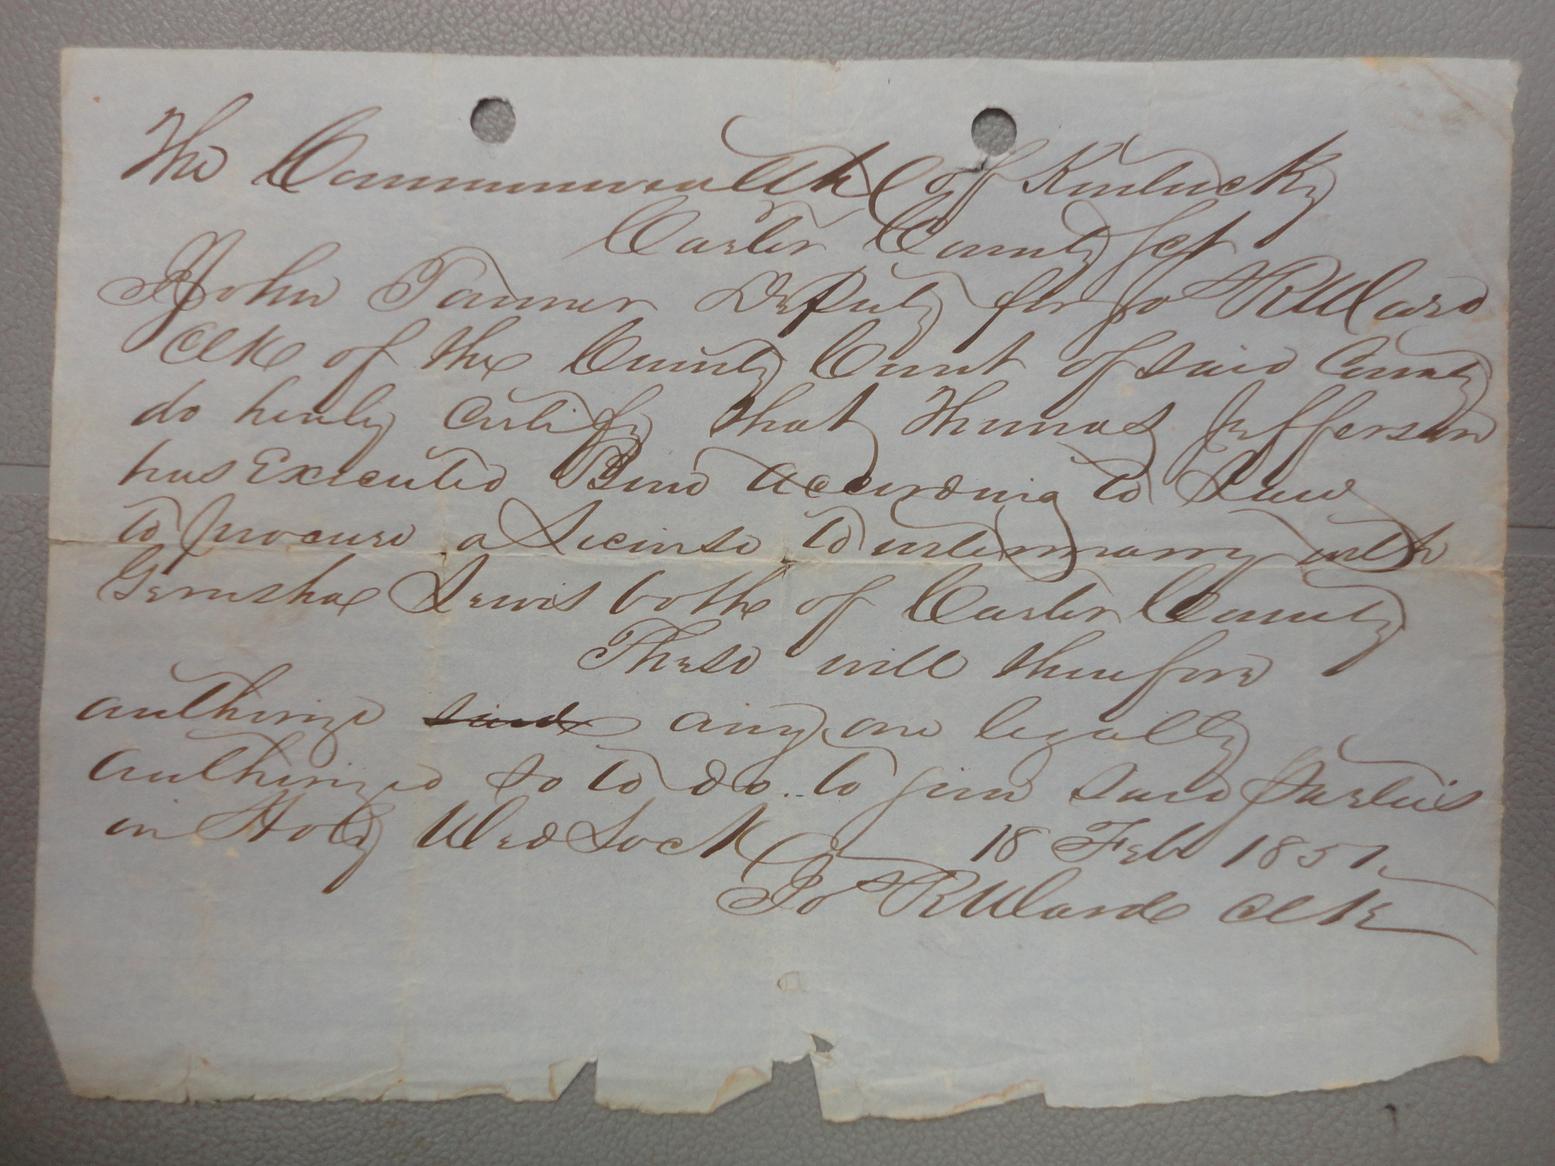 The Commonwealth of Kentucky
Carter County Sct
I John Tanner Deputy for Jo R Ward
Clk of the County Court of said County
do herby Certify that Thomas Jefferson
has Executed Bond according to Law
to procure a Licinse to intermarry with
Gerusha Lewis both of Carter County
These will therefore
authorize said any one legally
authorized so to do.. to join said parties
in Holy Wed Lock 18 Feb 1857
Jo R Ward Clk